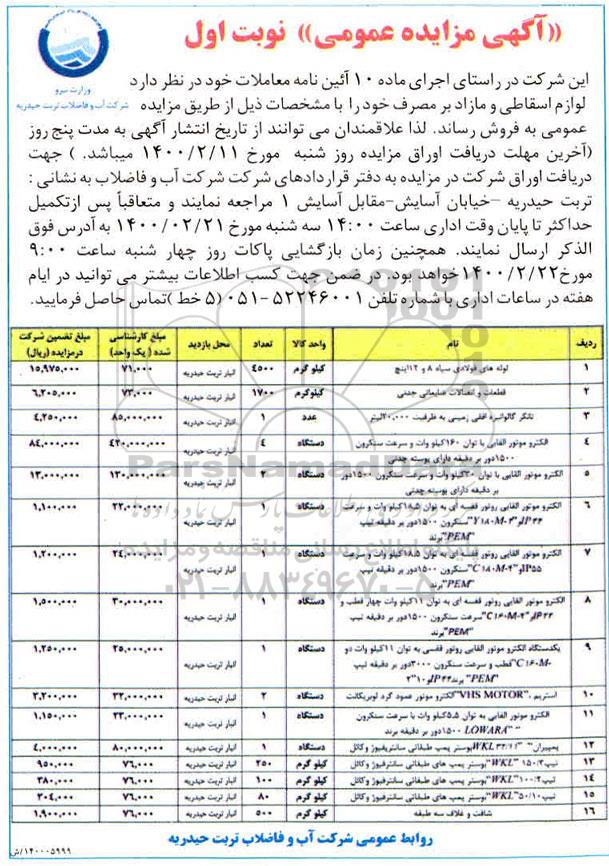 «آگهی مزایده عمومی» نوبت اول
وزارت نیرو
شرکت آب و فاضلاب تربت حیدریه
این شرکت در راستای اجرای ماده ۱۰ آئین نامه معاملات خود در نظر دارد
لوازم اسقاطی و مازاد بر مصرف خود را با مشخصات ذیل از طریق مزایده
عمومی به فروش رساند. لذا علاقمندان می توانند از تاریخ انتشار آگهی به مدت پنج روز
(آخرین مهلت دریافت اوراق مزایده روز شنبه مورخ ۱۴۰۰/۲/۱۱ میباشد. ) جهت
دریافت اوراق شرکت در مزایده به دفتر قراردادهای شرکت شرکت آب و فاضلاب به نشانی :
تربت حیدریه –خیابان آسایش-مقابل آسایش ۱ مراجعه نمایند و متعاقباً پس ازتکمیل
حداکثر تا پایان وقت اداری ساعت ۱۴:۰۰ سه شنبه مورخ ۱۴۰۰/۰۲/۲۱ به آدرس فوق
الذکر ارسال نمایند. همچنین زمان بازگشایی پاکات روز چهار شنبه ساعت ۹:۰۰
مورخ۱۴۰۰/۲/۲۲خواهد بود. در ضمن جهت کسب اطلاعات بیشتر می توانید در ایام
هفته در ساعات اداری با شماره تلفن ۵۲۲۴۶۰۰۱-۰۵۱ (۵ خط )تماس حاصل فرمایید.
ردیف نام واحد کالا تعداد محل بازدید مبلغ کارشناسی شده ( یک واحد) مبلغ تضمین شرکت درمزایده (ریال)
۱ لوله های فولادی سیاه ۸ و ۱۲اینچ کیلو گرم ۴۵۰۰ انبار تربت حیدریه ۷۱,۰۰۰ ۱۵,۹۷۵,۰۰۰
۲ قطعات و اتصالات ضایعاتی چدنی کیلوگرم ۱۷۰۰ انبار تربت حیدریه ۷۳,۰۰۰ ۶,۲۰۵,۰۰۰
۳ تانکر گالوانیزه افقی زمینی به ظرفیت ۲۰,۰۰۰لیتر عدد ۱ انبار تربت حیدریه ۸۵,۰۰۰,۰۰۰ ۴,۲۵۰,۰۰۰
۴ الکترو موتور القایی با توان ۱۶۰کیلو وات و سرعت سنکرون دستگاه ۴ انبار تربت حیدریه ۴۲۰,۰۰۰,۰۰۰ ۸۴,۰۰۰,۰۰۰
۱۵۰۰دور بر دقیقه دارای پوسته چدنی
۵ الکترو موتور القایی با توان ۳۰کیلو وات و سرعت سنکرون ۱۵۰۰دور دستگاه ۲ انبار تربت حیدریه ۱۳۰,۰۰۰,۰۰۰ ۱۳,۰۰۰,۰۰۰
بر دقیقه دارای پوسته چدنی
۶ الکترو موتور القایی روتور قفسه ای به توان ۱۸.۵کیلو وات و سرعت دستگاه ۱ انبار تربت حیدریه ۲۲,۰۰۰,۰۰۰ ۱,۱۰۰,۰۰۰
سنکرون ۱۵۰۰دور بر دقیقه تیپ "Y۱۸۰M-۴" وIP۴۴
برند "PEM"
۷ الکترو موتور القایی روتور قفسه ای به توان ۱۸.۵کیلو وات و سرعت دستگاه ۱ انبار تربت حیدریه ۲۴,۰۰۰,۰۰۰ ۱,۲۰۰,۰۰۰
سنکرون ۱۵۰۰دور بر دقیقه تیپ "C۱۸۰M-۴" وIP۵۵
برند "PEM"
۸ الکترو موتور القایی روتور قفسه ای به توان ۱۱کیلو وات چهار قطب و دستگاه ۱ انبار تربت حیدریه ۳۰,۰۰۰,۰۰۰ ۱,۵۰۰,۰۰۰
سرعت سنکرون ۱۵۰۰دور بر دقیقه تیپ "C۱۶۰M-۴" وIP۴۴
برند "PEM"
۹ یکدستگاه الکترو موتور القایی روتور قفسی به توان ۱۱کیلو وات دو دستگاه ۱ انبار تربت حیدریه ۲۵,۰۰۰,۰۰۰ ۱,۲۵۰,۰۰۰
قطب و سرعت سنکرون ۳۰۰۰دور بر دقیقه تیپ "C۱۶۰M-
۲" وIP۴۴ برند "PEM"
۱۰ الکترو موتور عمود گرد لوبریکانت "VHS MOTOR" استریم. دستگاه ۲ انبار تربت حیدریه ۳۲,۰۰۰,۰۰۰ ۳,۲۰۰,۰۰۰
۱۱ الکترو موتور القایی به توان ۵.۵کیلو وات با سرعت سنکرون دستگاه ۱ انبار تربت حیدریه ۲۳,۰۰۰,۰۰۰ ۱,۱۵۰,۰۰۰
۱۵۰۰دور بر دقیقه برند "LOWARA"
۱۲ بوستر پمپ طبقاتی سانتریفیوژ وکائل دستگاه ۱ انبار تربت حیدریه ۸۰,۰۰۰,۰۰۰ ۴,۰۰۰,۰۰۰
۱۳ بوستر پمپ های طبقاتی سانترفیوژ وکائل "WKL" تیپ۱۵۰/۳ کیلو گرم ۲۵۰ انبار تربت حیدریه ۷۶,۰۰۰ ۹۵۰,۰۰۰
۱۴ بوستر پمپ های طبقاتی سانترفیوژ وکائل "WKL" تیپ۱۰۰/۲ کیلو گرم ۱۰۰ انبار تربت حیدریه ۷۶,۰۰۰ ۳۸۰,۰۰۰
۱۵ بوستر پمپ های طبقاتی سانترفیوژ وکائل "WKL" تیپ۵۰/۱۰ کیلو گرم ۸۰ انبار تربت حیدریه ۷۶,۰۰۰ ۳۰۴,۰۰۰
۱۶ شافت و غلاف سه طبقه کیلو گرم ۵۰۰ انبار تربت حیدریه ۷۶,۰۰۰ ۱,۹۰۰,۰۰۰
ParsNamadData
۰۲۱-۸۸۳۴۹۶۷۰-۵
روابط عمومی شرکت آب و فاضلاب تربت حیدریه
۱۴۰۰۰۵۹۹۹/ش